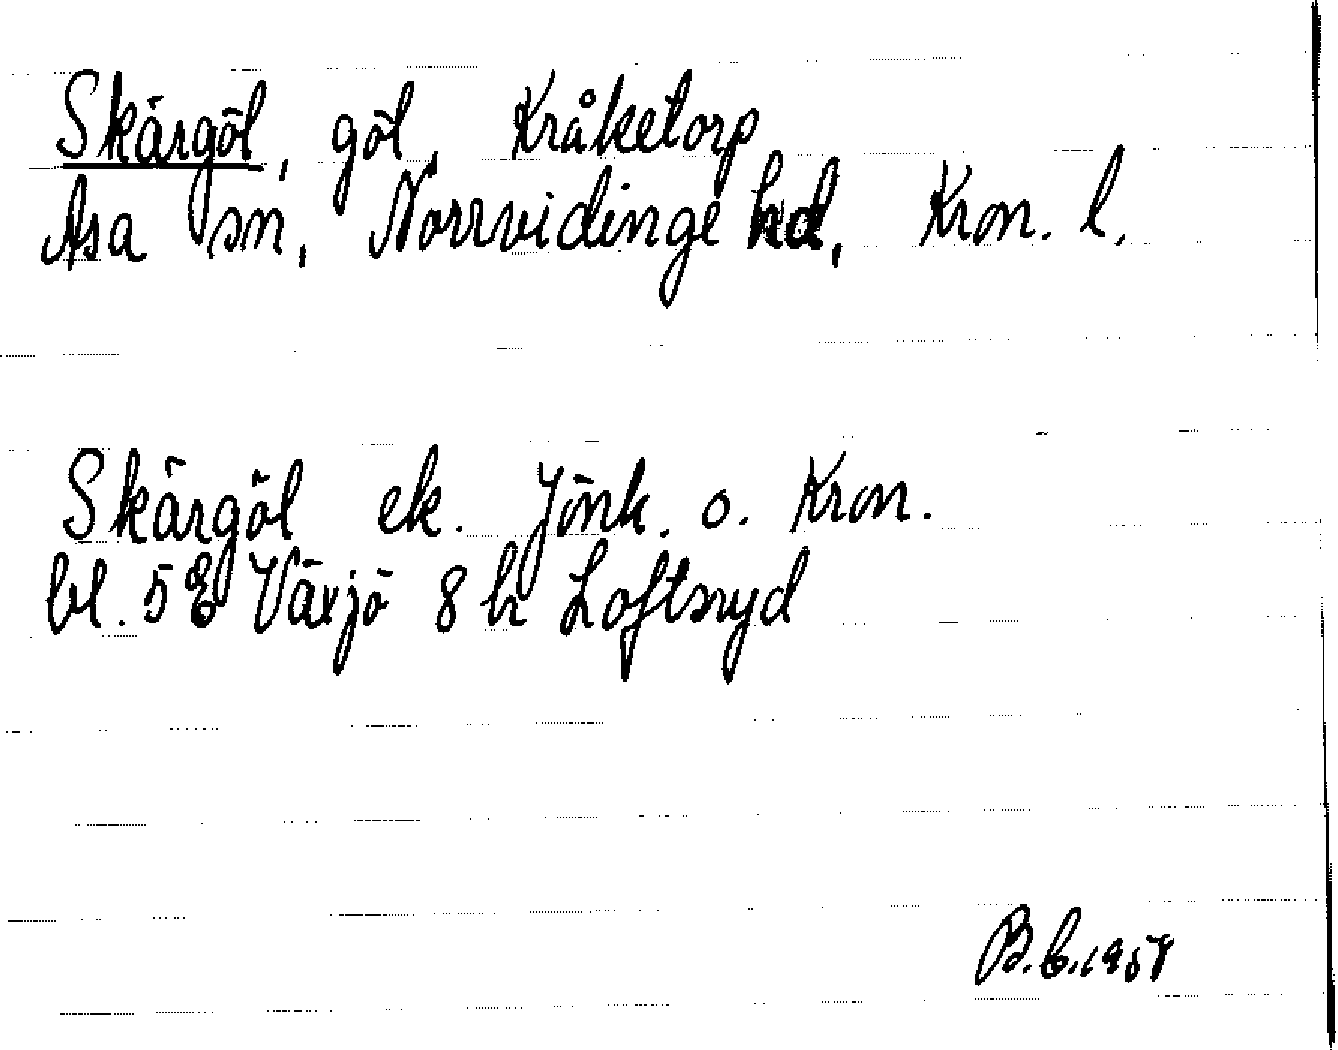 Skärgöl, göl, Kråketorp
Asa sn, Norrvidinge hd, Kron. l.
Skärgöl ek. Jönk. o. Kron.
bl. 5 E Växjö 8 h Loftsryd
B.E. 1958